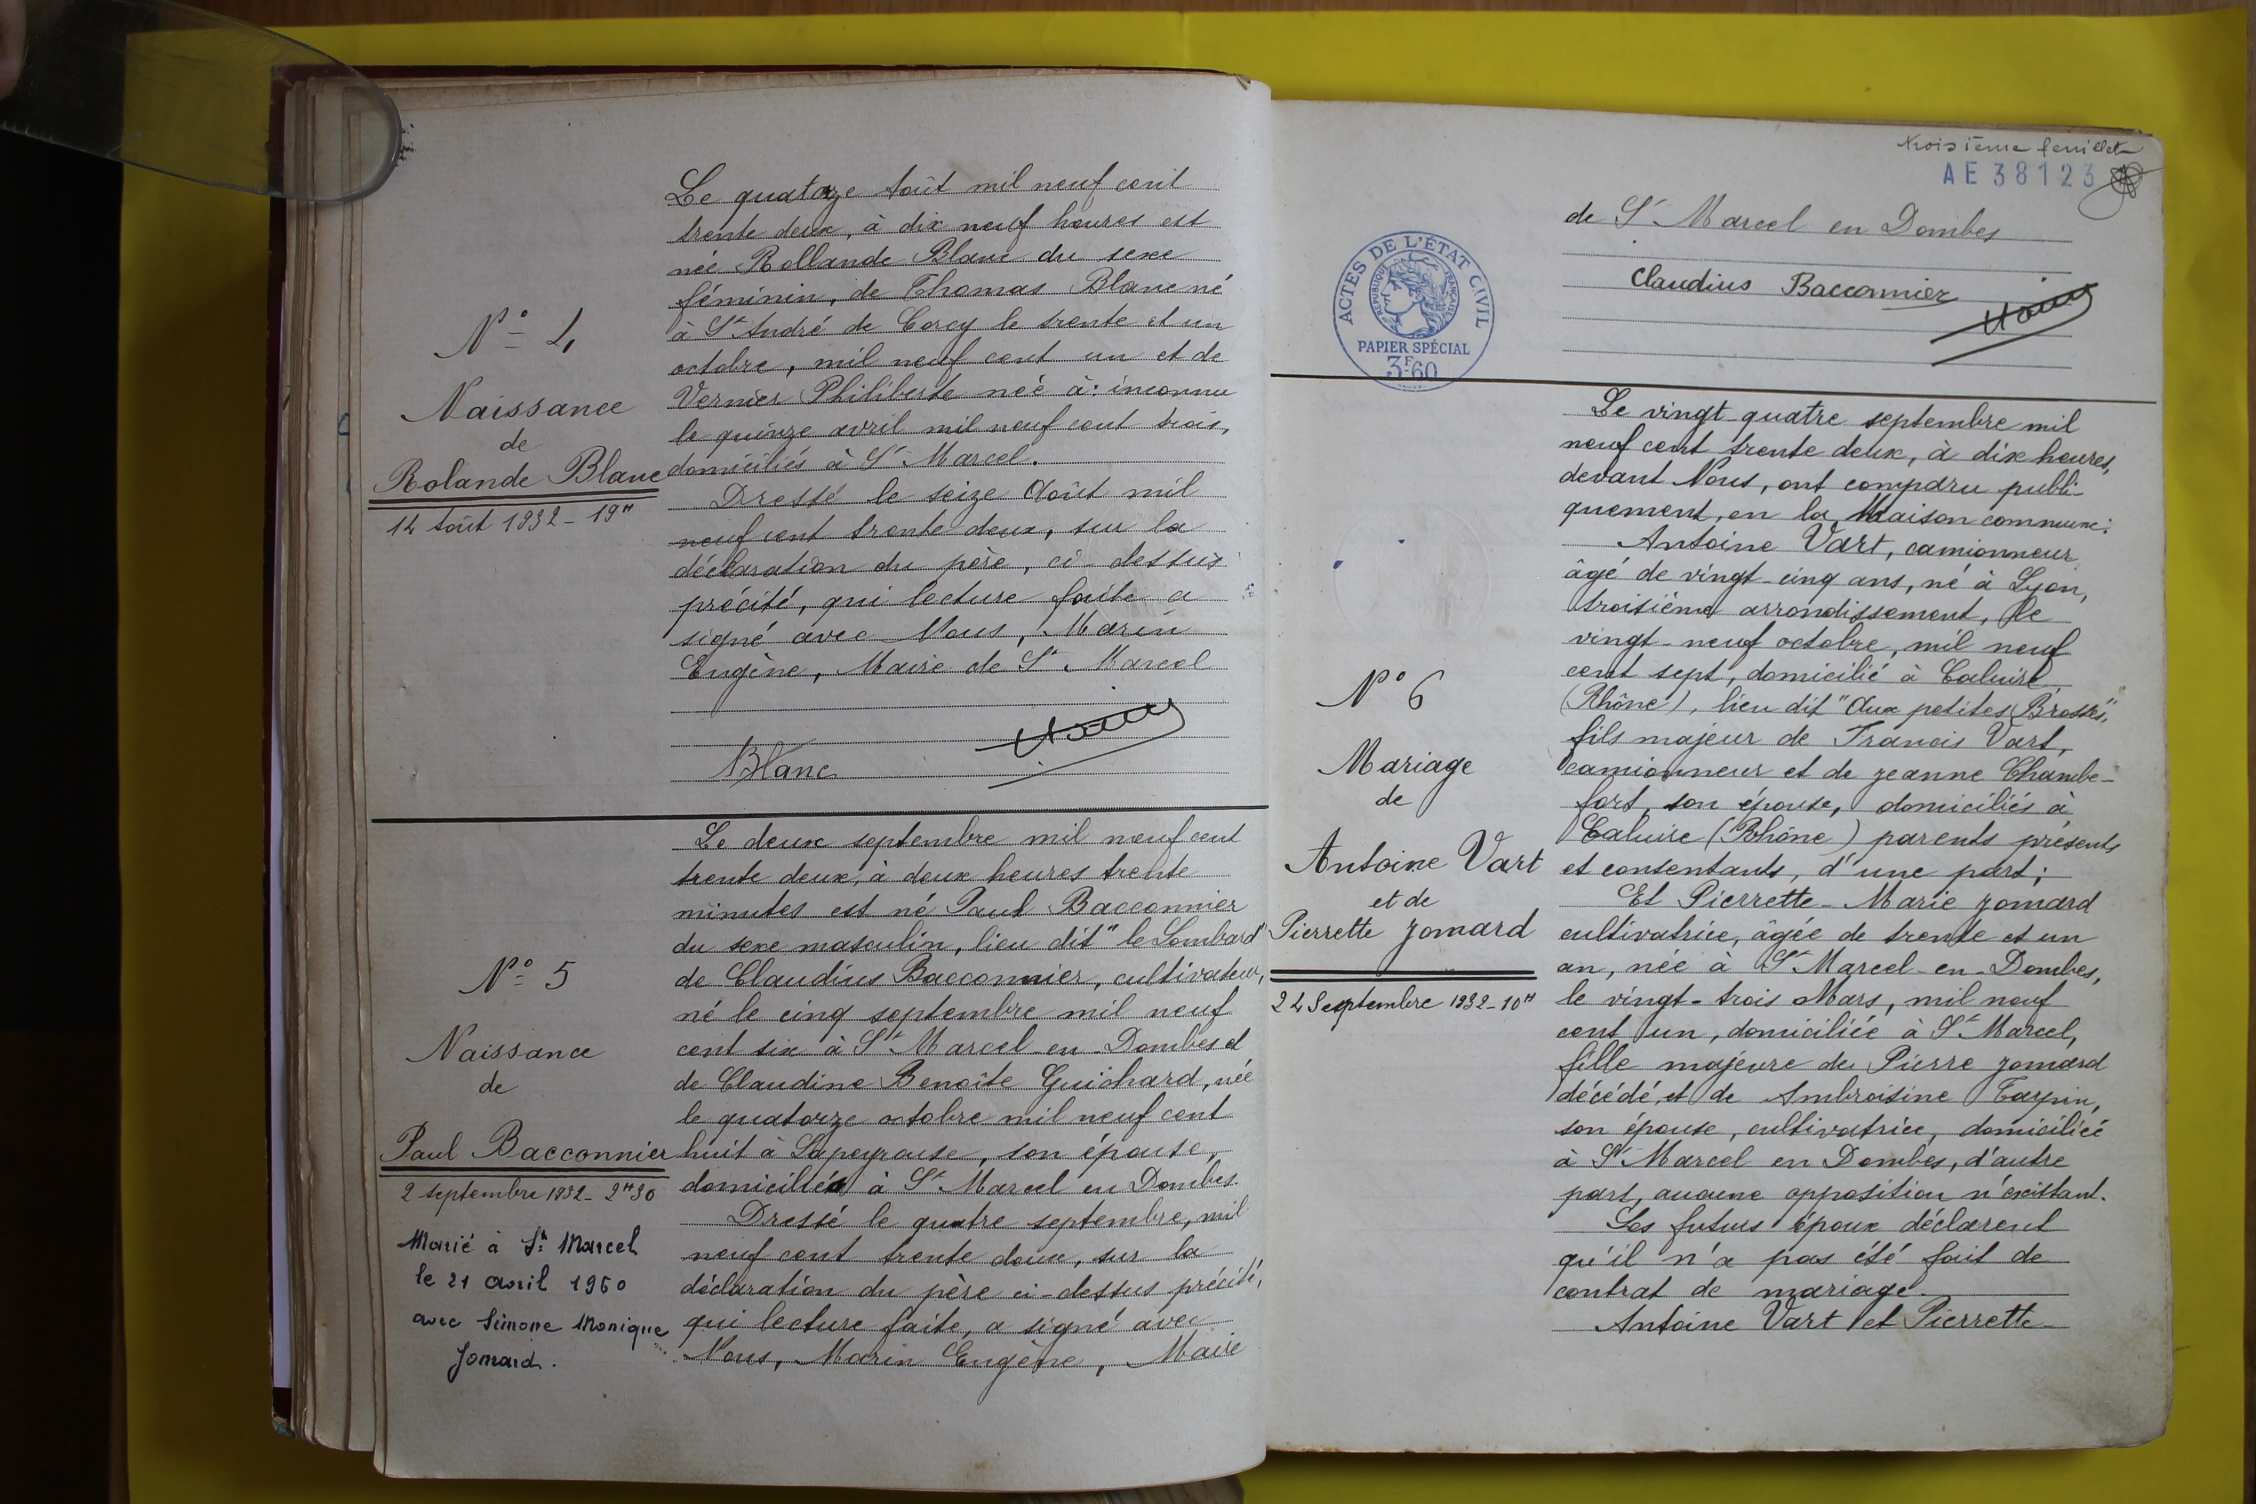 N° 4
Naissance
de
Rolande Blanc
14 Août 1932 - 19H
Le quatorze Août mil neuf cent
trente deux, à dix neuf heures est
née Rollande Blanc du sexe
féminin, de Thomas Blanc né
à St André de Corcy le trente et un
octobre, mil neuf cent un et de
Vernier Philiberte née à : inconnu
le quinze avril mil neuf cent trois,
domiciliés à St Marcel.
Dressé le seize Août mil
neuf cent trente deux, sur la
déclaration du père, ci-dessus
précité, qui lecture faite a
signé avec Nous, Marin
Eugène, Maire de St Marcel
Blanc
N° 5
Naissance
de
Paul Bacconnier
2 septembre 1932 - 2H30
Marié à St Marcel
le 21 avril 1960
avec Simone Monique
Jomard.
Le deux septembre mil neuf cent
trente deux, à deux heures trente
minutes est né Paul Bacconnier
du sexe masculin, lieu dit "le Lombard"
de Claudius Bacconnier, cultivateur,
né le cinq septembre mil neuf
cent six à St Marcel-en-Dombes et
de Claudine Benoîte Guichard, née
le quatorze octobre mil neuf cent
huit à Lapeyrouse, son épouse,
domiciliés à St Marcel en Dombes.
Dressé le quatre septembre, mil
neuf cent trente deux, sur la
déclaration du père ci-dessus précité,
qui lecture faite, a signé avec
Nous, Marin Eugène, Maire
troisième feuillet
AE 38123
de St Marcel en Dombes
Claudius Bacconnier
ACTES DE L'ÉTAT CIVIL
RÉPUBLIQUE FRANÇAISE
PAPIER SPÉCIAL
3F.60
N° 6
Mariage
de
Antoine Vart
et de
Pierrette Jomard
24 Septembre 1932-10H
Le vingt-quatre septembre mil
neuf cent trente deux, à dix heures,
devant Nous, ont comparu publi-
quement, en la Maison commune :
Antoine Vart, camionneur
âgé de vingt-cinq ans, né à Lyon,
troisième arrondissement, le
vingt-neuf octobre, mil neuf
cent sept, domicilié à Caluire
(Rhône), lieu dit "Aux petites Brosses",
fils majeur de Francis Vart,
camionneur et de Jeanne Chambe-
fort, son épouse, domiciliés à
Caluire (Rhône) parents présents
et consentants, d'une part ;
Et Pierrette-Marie Jomard
cultivatrice, âgée de trente et un
an, née à St Marcel-en-Dombes,
le vingt-trois Mars, mil neuf
cent un, domiciliée à St Marcel,
fille majeure de Pierre Jomard
décédé, et de Ambroisine Tarpin,
son épouse, cultivatrice, domiciliée
à St Marcel en Dombes, d'autre
part, aucune opposition n'existant.
Les futurs époux déclarent
qu'il n'a pas été fait de
contrat de mariage.
Antoine Vart et Pierrette